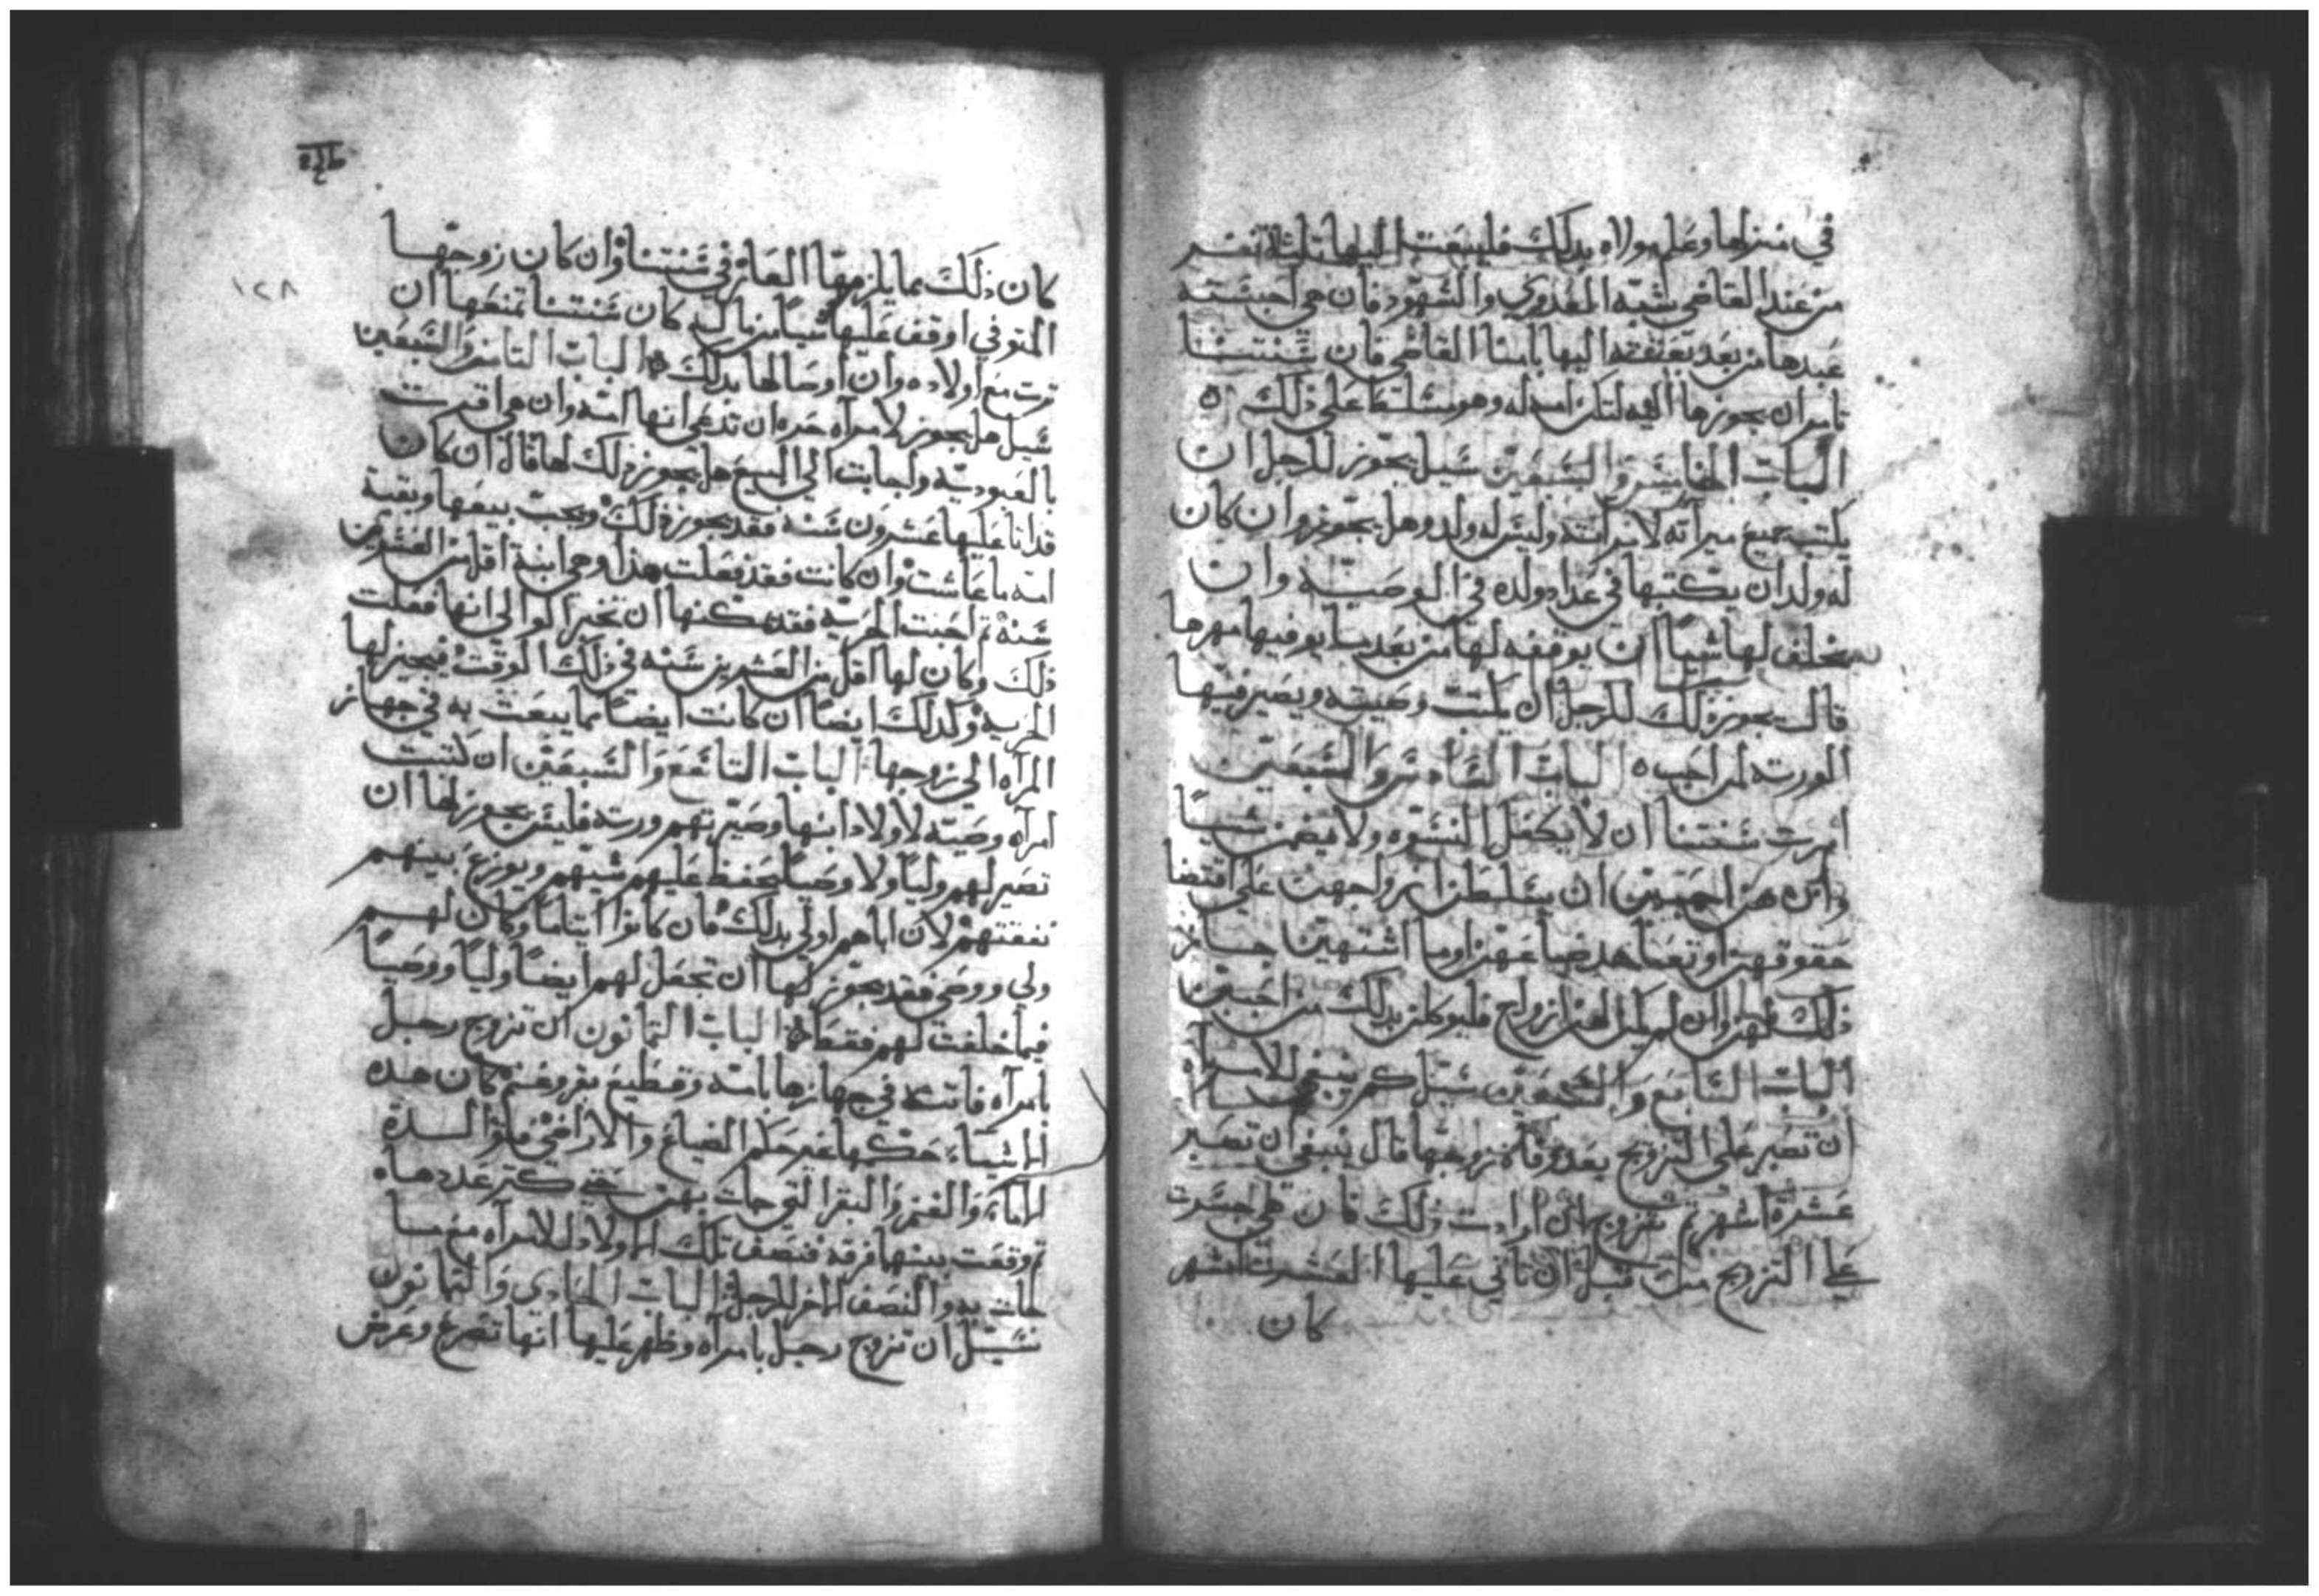 في منزلها وعلم مولاه بدلك فليبعت اليها تلتة نفر
من عند القاضي شبه المعدوي والشهود فان هي احبسته
عبدها من بعد بعتته اليها بامنا القاضي فان سنتنا
تامر ان يحوزها اليه لتكن امه له وهو مسلط على ذلك
الباب الخامس والسبعين سيل يجوز للرجل ان
يكتب جميع ميراته لامراته وليس له ولد وهل يجوز وان كان
له ولد ان يكتبها في عداد ولده في الوصيه وان
لم يخلف لها شياً ان يوقفه لها من بعد ما يوفيها مهرها
قال يجوز ذلك للرجل ان يكتب وصيته ويصير فيها
الورته لمن احب الباب السادس والسبعين
امرت سنتنا ان لا يكفل النسوه ولا يضمن شياً
وانكن هن احببن ان يسلطن ازواجهن على اقتضا
حقوقهن او تعاهد ضياعهن او ما اشتهين جاز
ذلك لهن وان لم يكن لهن ازواج فليوكلن بدلك من احببن
الباب السابع والسبعين سيل كم ينبغي للامراه
ان تصبر على التزويج بعد وفاة زوجها قال ينبغي ان تصبر
عشرة اشهر تم تتزوج ان ارادت ذلك فان هي جسرت
علي التزويج من قبل ان تاتي عليها العشرة اشهر
كان
١٢٨
كان ذلك مما يلزمها العار في سنتنا وان كان زوجها
المتوفي اوقف عليها شياً من ماله كان سنتنا تمنعها ان
ترت مع اولاده وان اوصا لها بدلك الباب التامن والسبعين
سيل هل يجوز لامراه حره ان تدعي انها امه وان هي اقرت
بالعبوديه واجابت الي البيع هل يجوز ذلك لها قال ان كان
قد اتا عليها عشرون سنه فقد يجوز ذلك ويجب بيعها وبقية
امه ما عاشت وان كانت فقد فعلت هذا وهي ابنة اقل من العشرين
سنة تم احبت الحريه فقد يمكنها ان تخبر الوالي انها فعلت
ذلك وكان لها اقل من العشرين سنه في ذلك الوقت فيجيز لها
الحريه وكدلك ايضاً ان كانت ايضاً مما يبعت به في جهاز
المراه الي زوجها الباب التاسع والسبعين ان كتبت
امراه وصيته لاولاد ابنها وصيرتهم ورته فليس يجوز لها ان
تصير لهم ولياً ولا وصياً يحفظ عليهم شيهم ويوزع بينهم
نفقتهم لان اباهم اولي بدلك فان كانوا ايتاماً وكان لهم
ولي ووصي فقد يجوز لها ان تجعل لهم ايضاً ولياً ووصياً
فيما خلفت لهم فقط الباب التمانون ان تزوج رجل
بامراه فاتته في جهازها بامته وقطيع بقر وغنم كان هده
الاشياء حكمها غير حكم الضياع والاراضي
الاماء والغنم والبقر التي جات بهن حتي كتر عددهاه
تم وقعت بينهما فرقه فنصف تلك الاولاد للامراه مع ما
جات به والنصف الاخر للرجل الباب الحادي والتمانون
سيل ان تزوج رجل بامراه وظهر عليها انها تصرع وعرض